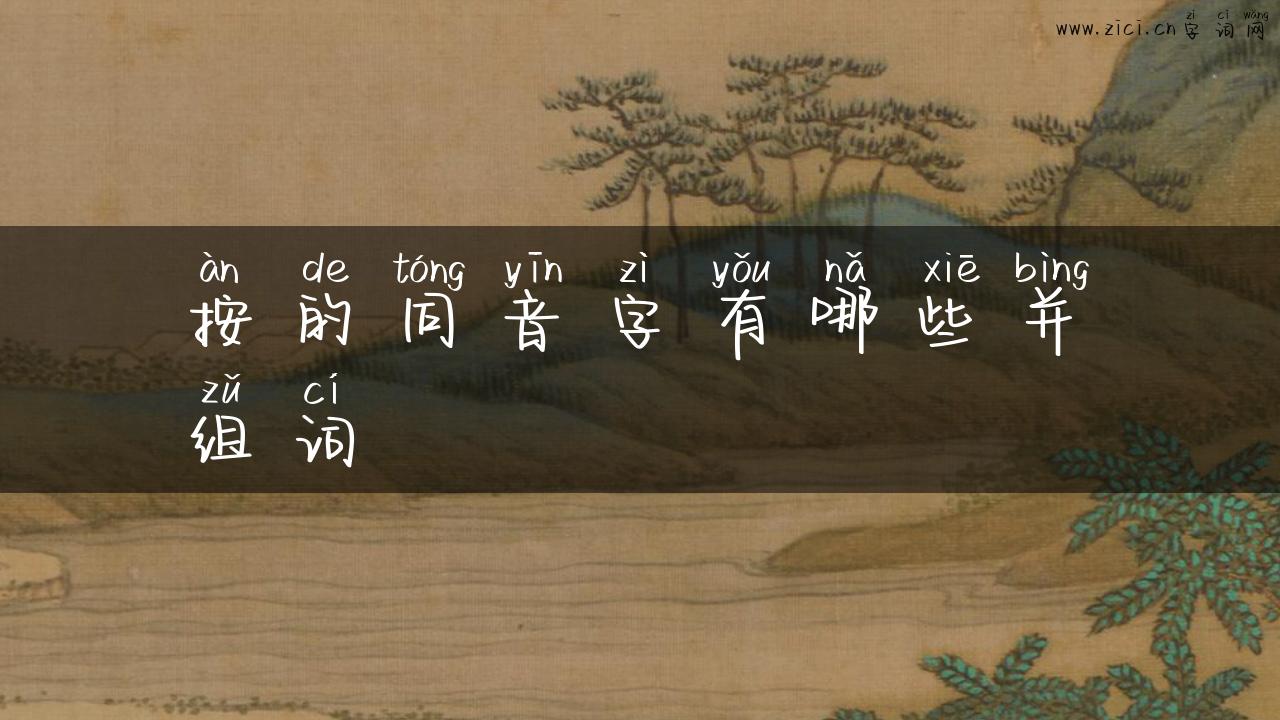 zì cí wǎng
www.zici.cn 字词网
àn de tóng yīn zì yǒu nǎ xiē bìng
按的同音字有哪些并
zǔ cí
组词